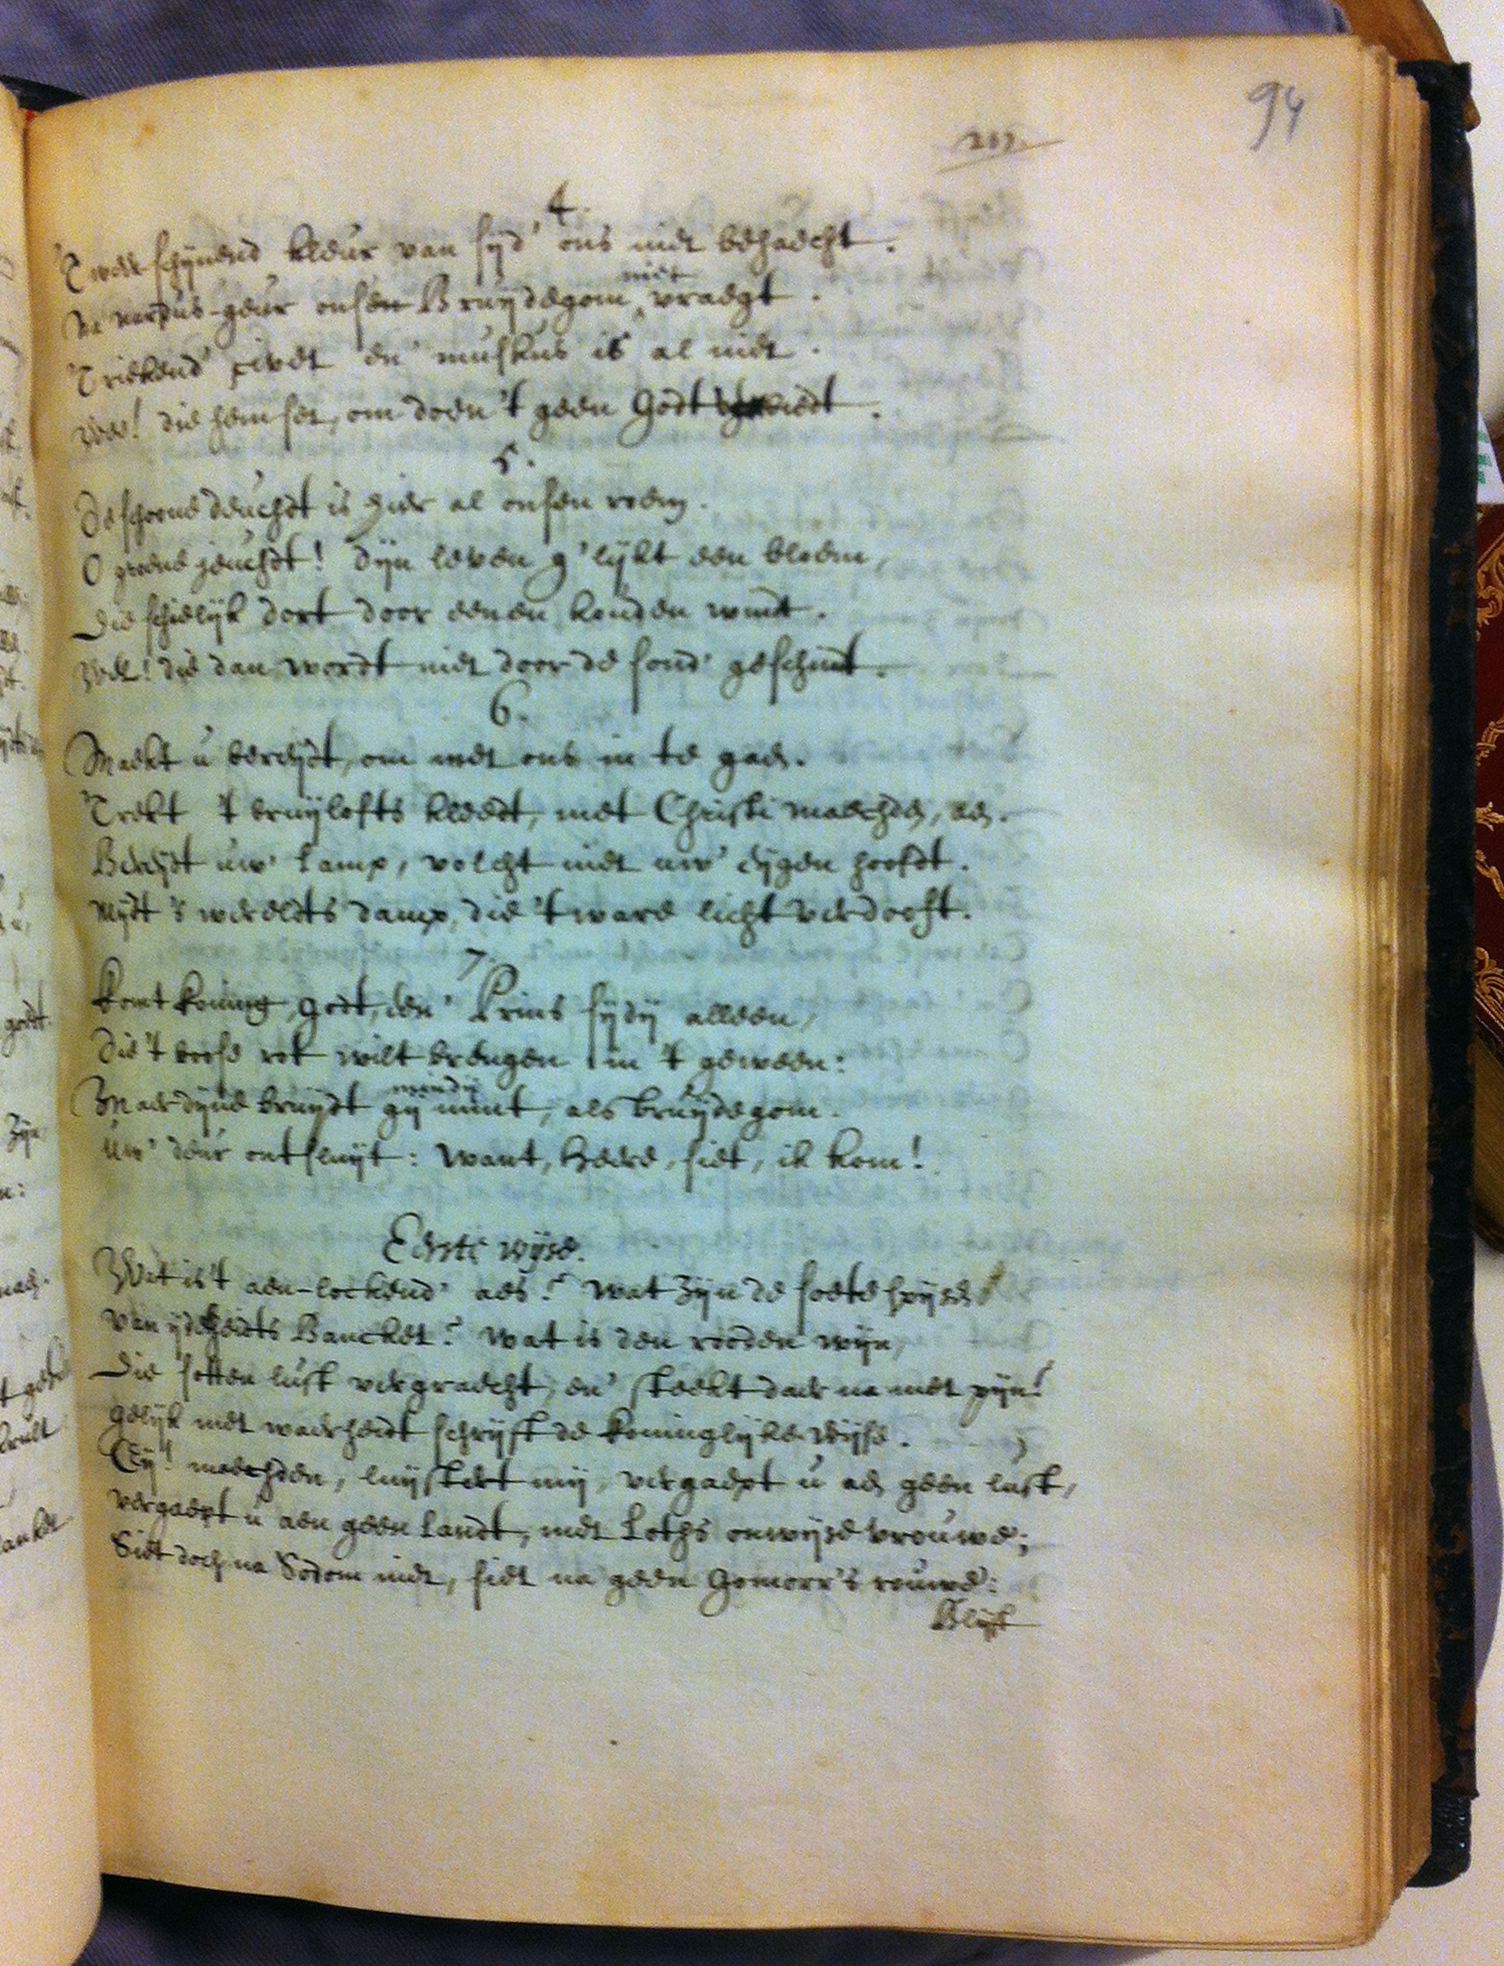 94
207.
4.
'T weerschijnend kleur van sijd' ons niet behaecht.
Na nardus-geur onsen Bruijdegom niet vraegt.
'T riekend' civet en' muskus is al niet.
Wee! die hem set, om doen 't geen Godt verbiedt.
5.
De schoone deucht is hier al onsen roem.
O groene jeucht! dijn leven g'lijkt een bloem,
Die schielijk dort door eenen kouden windt.
Wel! die dan wordt niet door de sond' geschint.
6.
Maekt u bereijdt, om met ons in te gaen.
Trekt 't bruijlofts kleedt, met Christi maechden, aen.
Bereijdt uw' lamp, volcht niet uw' eijgen hooft.
Mijdt 's wereldts damp, die 't ware licht verdooft.
7.
Komt koning, Godt, den' Prins sijdij alleen,
Die 't boose rot wilt brengen in 't geween:
Maer dijne bruijdt gij mint, als bruijdegom.
Uw' deur ontsluijt: want, heere, siet, ik kom!
Eerste wijse.
Wat is 't aen-lockend' aes? Wat zijn de soete spijsen
Van ijdelheidts Bancket? Wat is den rooden wijn,
Die sotten lust vergraecht, en' steekt daer na met pijn?
Gelijk met waerheidt schrijft de koninglijke Wijse.
Eij! maechden, luijstert mij, vergaept u aen geen lust,
vergaept u aen geen landt, met Loths onwijse vrouwe;
Siet doch na Sodom niet, siet na geen Gomorr's rouwe:
Blijft